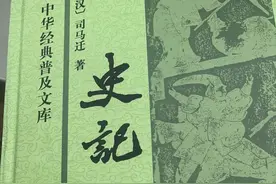 中华经典普及文库
汉〕司马迁 著
史记